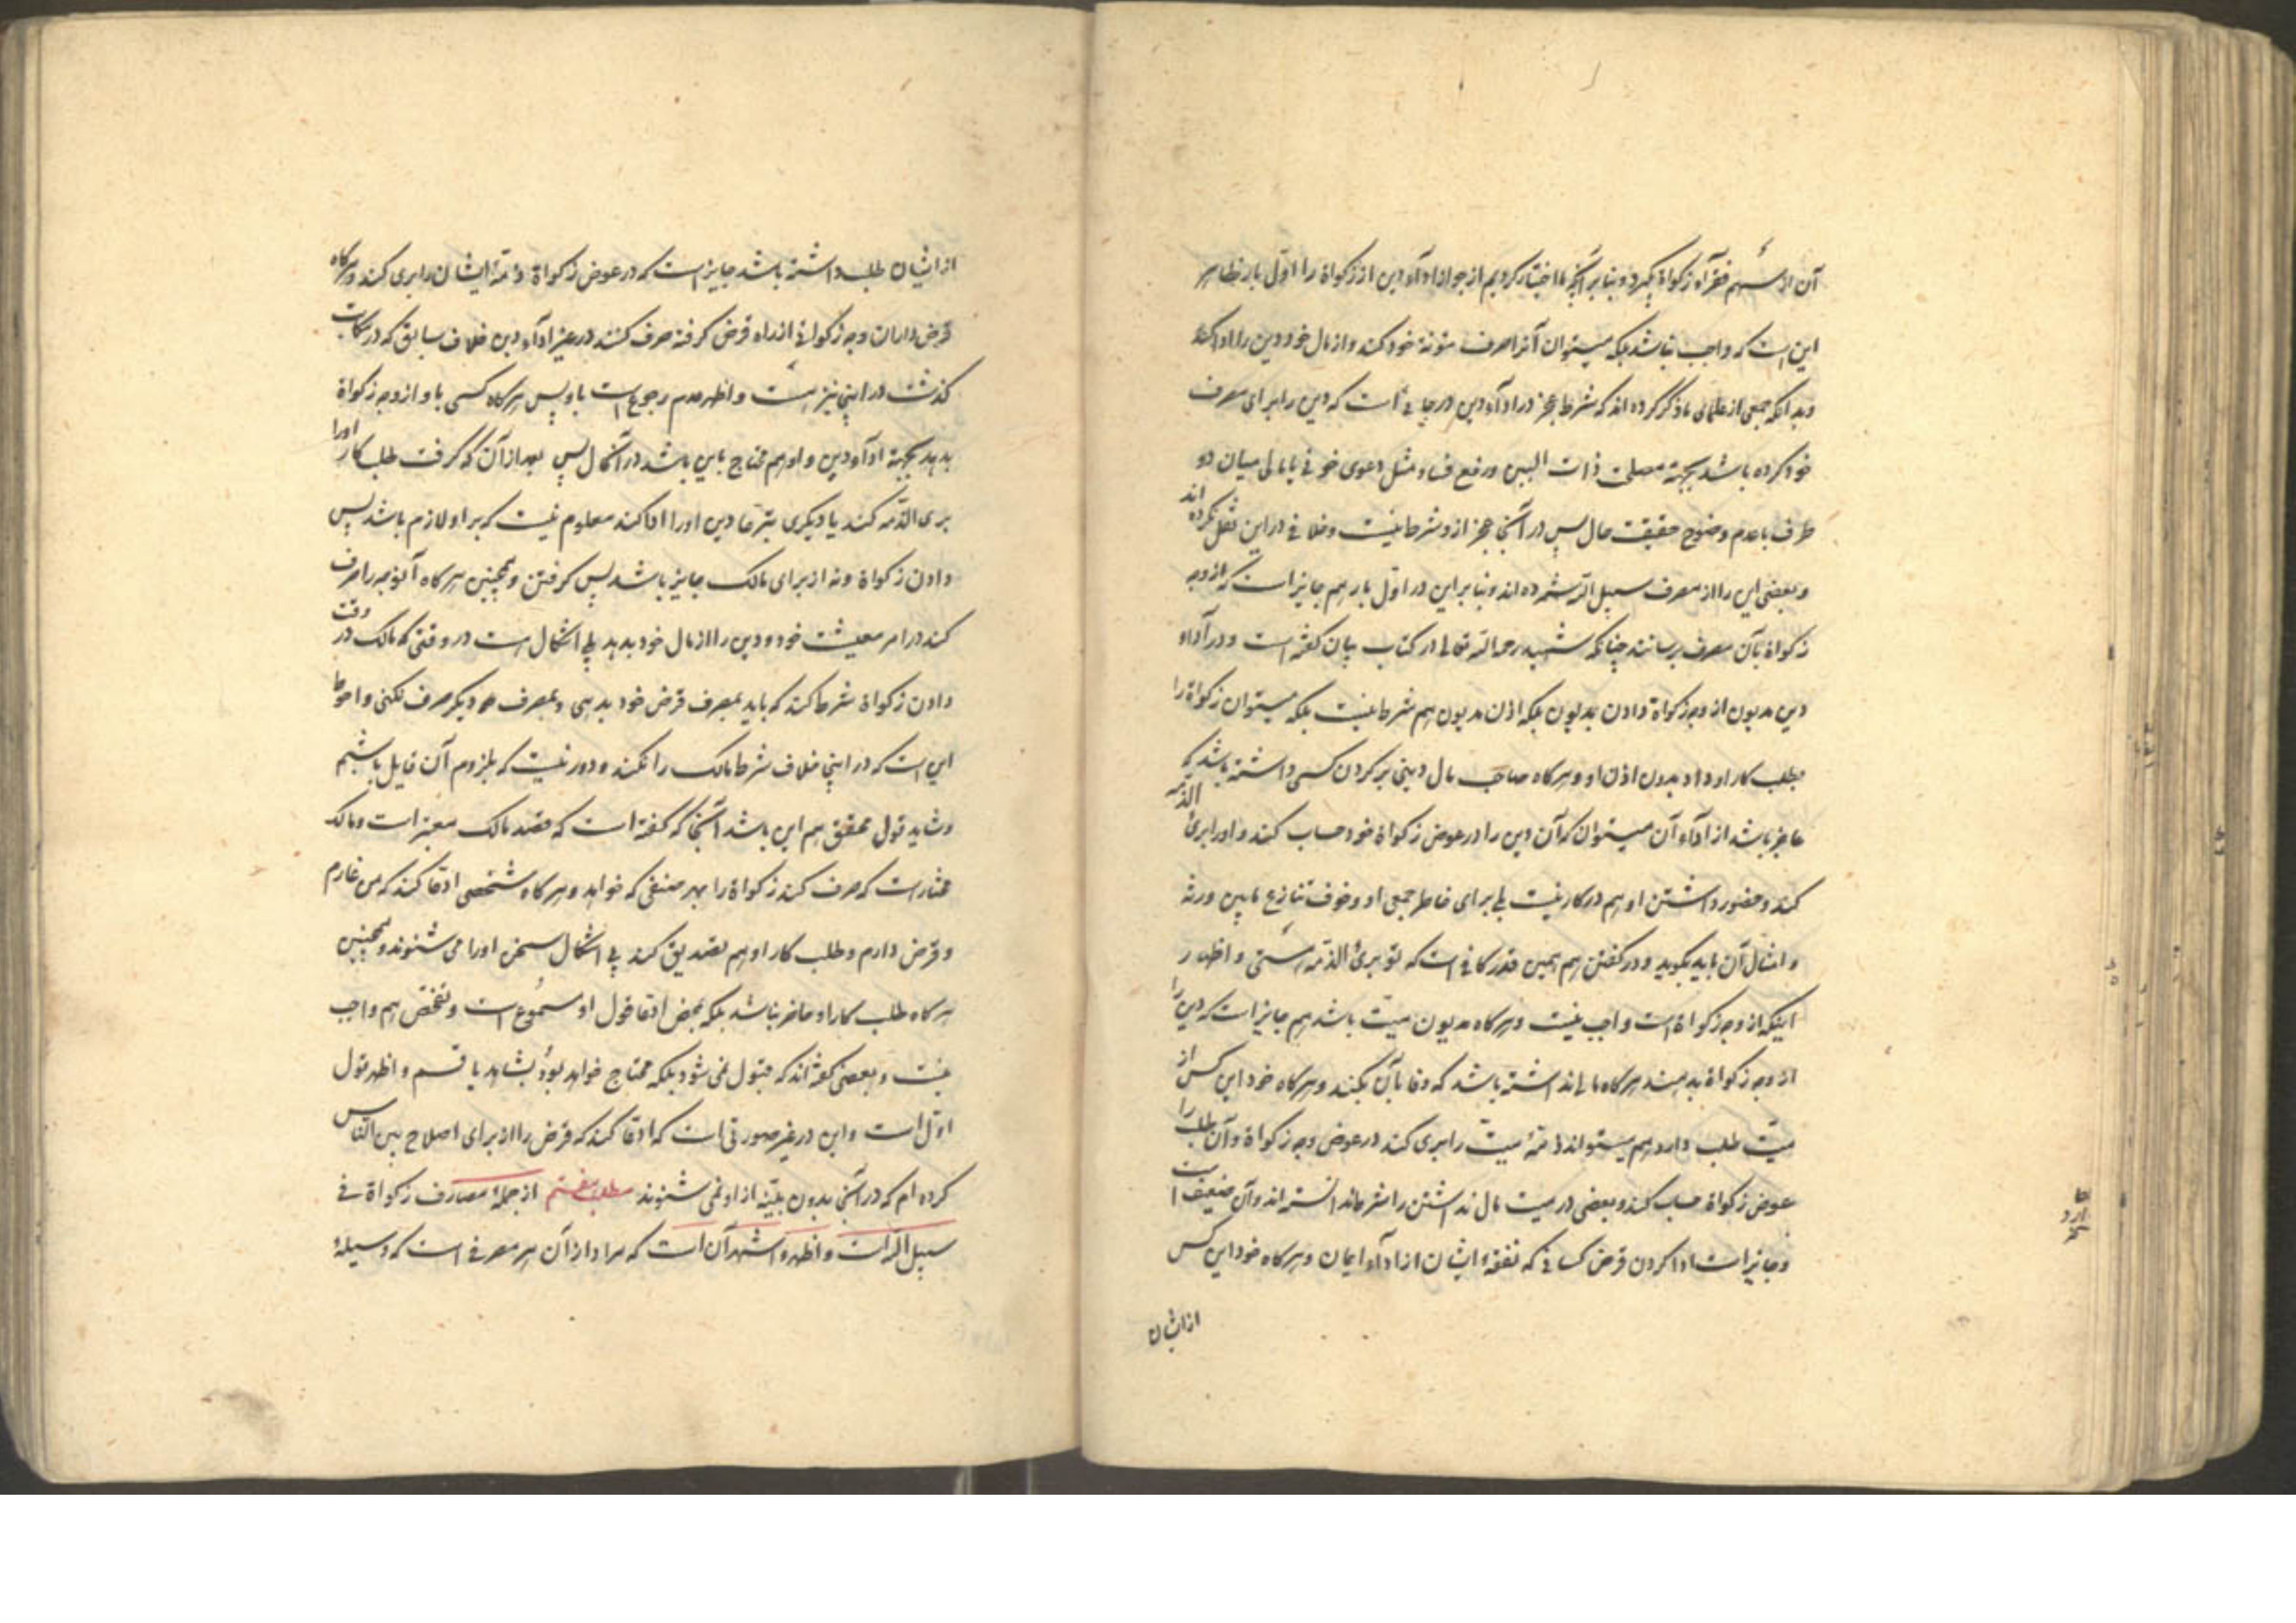 آن از سهم فقرآء زکواة بگیرد و بنا بر آنچه ما اختیار کردیم از جواز ادآء دین از زکواة را اوّل بار ظاهر
این است که واجب نباشد بلکه میتوان آنرا صرف مئونهٔ خود کند و از مال خود دین را ادا کند
و بدانکه جمعی از علمای ما ذکر کرده‌اند که شرط عجز در ادآء دین در جایی است که دین را برای مصرف
خود کرده باشد بجهة مصلحت ذات البین و رفع فساد مثل دعوی خونی یا مالی میان دو
طرف با عدم وضوح حقیقت حال پس در آنجا عجز از او شرط نیست و خلافی در این نقل نکرده‌اند
و بعضی این را از مصرف سبیل الله شمرده‌اند و بنا بر این در اوّل بار هم جایز است که از وجه
زکواة بآن مصرف برسانند چنانکه شهید رحمه الله تعالی در کتاب بیان گفته است و در آداء
دین مدیون از وجه زکواة دادن بمدیون بلکه اذن مدیون هم شرط نیست بلکه میتوان زکواة را
بطلب کار او داد بدون اذن او و هرگاه صاحب مال دینی بر گردن کسی داشته باشد که
عاجز باشد از ادآء آن میتوان که آن دین را در عوض زکواة خود حساب کند و او را بریٔ الذمه
کند و حضور داشتن او هم در کار نیست بلی برای خاطر جمعی او و خوف تنازع مابین ورثه
و امثال آن باید بگوید و در گفتن هم همین قدر کافی است که تو بریٔ الذمّه هستی و اظهار
اینکه از وجه زکواة است واجب نیست و هرگاه مدیون میّت باشد هم جایز است که دین را
از وجه زکواة بدهند هرگاه مالی نداشته باشد که وفا بآن بکند و هرگاه خود این کس از
میّت طلب دارد هم میتواند ذمّهٔ میّت را بری کند در عوض وجه زکواة و آن طلب را
عوض زکواة حساب کند و بعضی در میت مال نداشتن را شرط ندانسته‌اند و آن ضعیف است
و جایز است ادا کردن قرض کسانی که نفقهٔ ایشان از ادآء ایمان و هرگاه خود این کس
از ایشان
از ایشان طلب داشته باشد جایز است که در عوض زکواة ذمّهٔ ایشان را بری کند و هرگاه
قرض داران وجه زکواتی از راه قرض گرفته صرف کنند در غیر ادآء دین خلاف سابق که در مکاتب
گذشت در اینجا نیز هست و اظهر عدم رجوع است باو پس هرگاه کسی باو از وجه زکواة
بدهد بجهة ادآء دین و او هم محتاج باین باشد در آنحال پس بعد از آن که گرفت طلبکار او را
بری الذّمه کند یا دیگری تبرّعا دین او را ادا کند معلوم نیست که بر او لازم باشد پس
دادن زکواة و نه از برای مالک جایز باشد پس گرفتن و همچنین هرگاه آنوجه را صرف
کند در امر معیشت خود و دین را از مال خود بدهد بلی اشکال است در وقتی که مالک در وقت
دادن زکواة شرط کند که باید بمصرف قرض خود بدهی و بمصرف دیگر صرف نکنی و احوط
این است که در اینجا خلاف شرط مالک را نکند و دور نیست که بلزوم آن قایل باشیم
و شاید قول محقق هم این باشد آنجا که گفته است که قصد مالک معتبر است و مالک
مختار است که صرف کند زکواة را بهر صنفی که خواهد و هرگاه شخصی ادّعا کند که من غارم
و قرض دارم و طلب کار او هم تصدیق کند بی اشکال سخن او را می‌شنوند و همچنین
هرگاه طلب کار او حاضر نباشد بلکه بمحض ادّعا قول او مسموع است و تفحّص هم واجب
نیست و بعضی گفته‌اند که قبول نمی‌شود بلکه محتاج خواهد بود بشاهد یا قسم و اظهر قول
اوّل است و این در غیر صورتی است که ادّعا کند که قرض را از برای اصلاح بین النّاس
کرده‌ام که در آنجا بدون بیّنه از او نمی‌شنوند مطلب هفتم از جملهٔ مصارف زکواة فی
سبیل الله است و اظهر و اشهر آن است که مراد از آن هر مصرفی است که وسیلهٔ